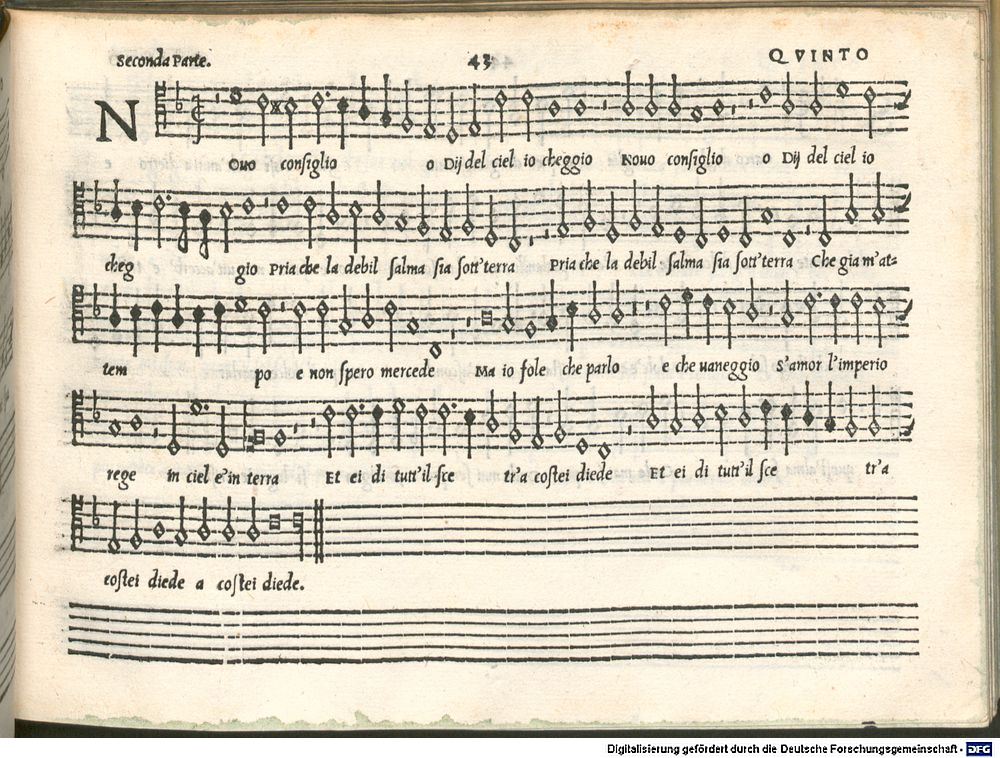 Seconda Parte. 43 QVINTO
NOuo consiglio o Dij del ciel io cheggio Nouo consiglio o Dij del ciel io
cheg gio Pria che la debil salma sia sott'terra Pria che la debil salma sia sott'terra Che gia m'at-
tem po e non spero mercede Ma io sole che parlo e che uaneggio S'amor l'imperio
rege in ciel e'in terra Et ei di tutt'il sce tr'a costei diede Et ei di tutt'il sce tr'a
costei diede a costei diede.
Digitalisierung gefördert durch die Deutsche Forschungsgemeinschaft - DFG